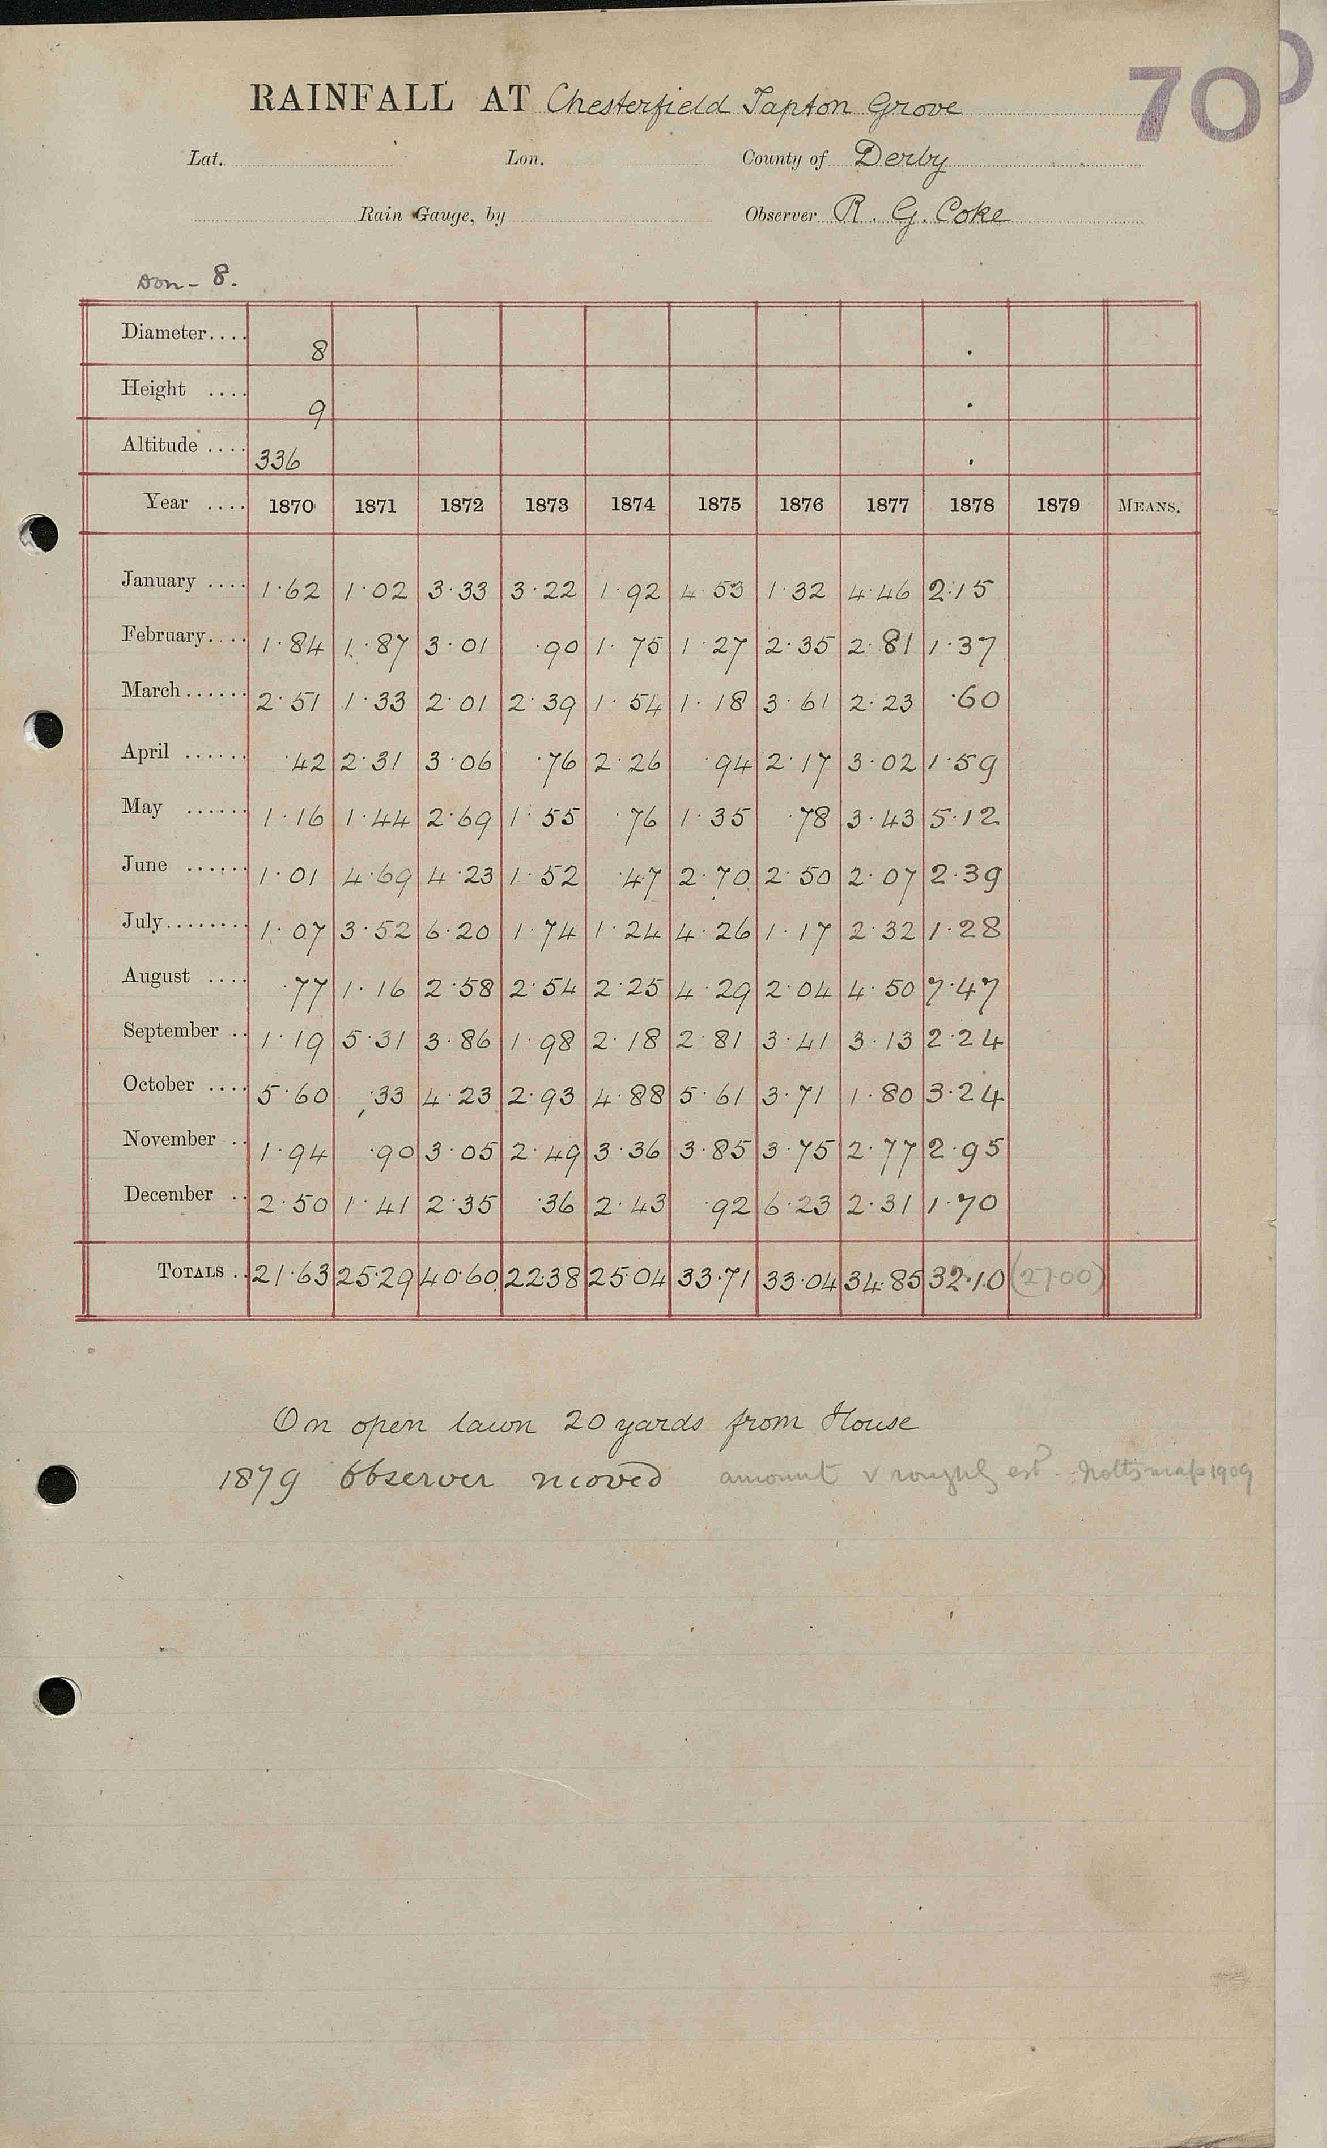 70
RAINFALL AT Chesterfield Tapton Grove
Lat. Lon. County of Derby
Rain Gauge, by Observer R. G. Coke
Don - 8.
Diameter.... 8
Height .... 9
Altitude .... 336
Year .... 1870 1871 1872 1873 1874 1875 1876 1877 1878 1879 MEANS.
January .... 1·62 1·02 3·33 3·22 1·92 4·53 1·32 4·46 2·15
February.... 1·84 1·87 3·01 ·90 1·75 1·27 2·35 2·81 1·37
March...... 2·51 1·33 2·01 2·39 1·54 1·18 3·61 2·23 ·60
April ...... ·42 2·31 3·06 ·76 2·26 ·94 2·17 3·02 1·59
May ...... 1·16 1·44 2·69 1·55 ·76 1·35 ·78 3·43 5·12
June ...... 1·01 4·69 4·23 1·52 ·47 2·70 2·50 2·07 2·39
July........ 1·07 3·52 6·20 1·74 1·24 4·26 1·17 2·32 1·28
August .... ·77 1·16 2·58 2·54 2·25 4·29 2·04 4·50 7·47
September .. 1·19 5·31 3·86 1·98 2·18 2·81 3·41 3·13 2·24
October .... 5·60 ·33 4·23 2·93 4·88 5·61 3·71 1·80 3·24
November .. 1·94 ·90 3·05 2·49 3·36 3·85 3·75 2·77 2·95
December .. 2·50 1·41 2·35 ·36 2·43 ·92 6·23 2·31 1·70
TOTALS .. 21·63 25·29 40·60 22·38 25·04 33·71 33·04 34·85 32·10 (27·00)
On open lawn 20 yards from House
1879 Observer moved amount v roughly estd. Notts map 1909